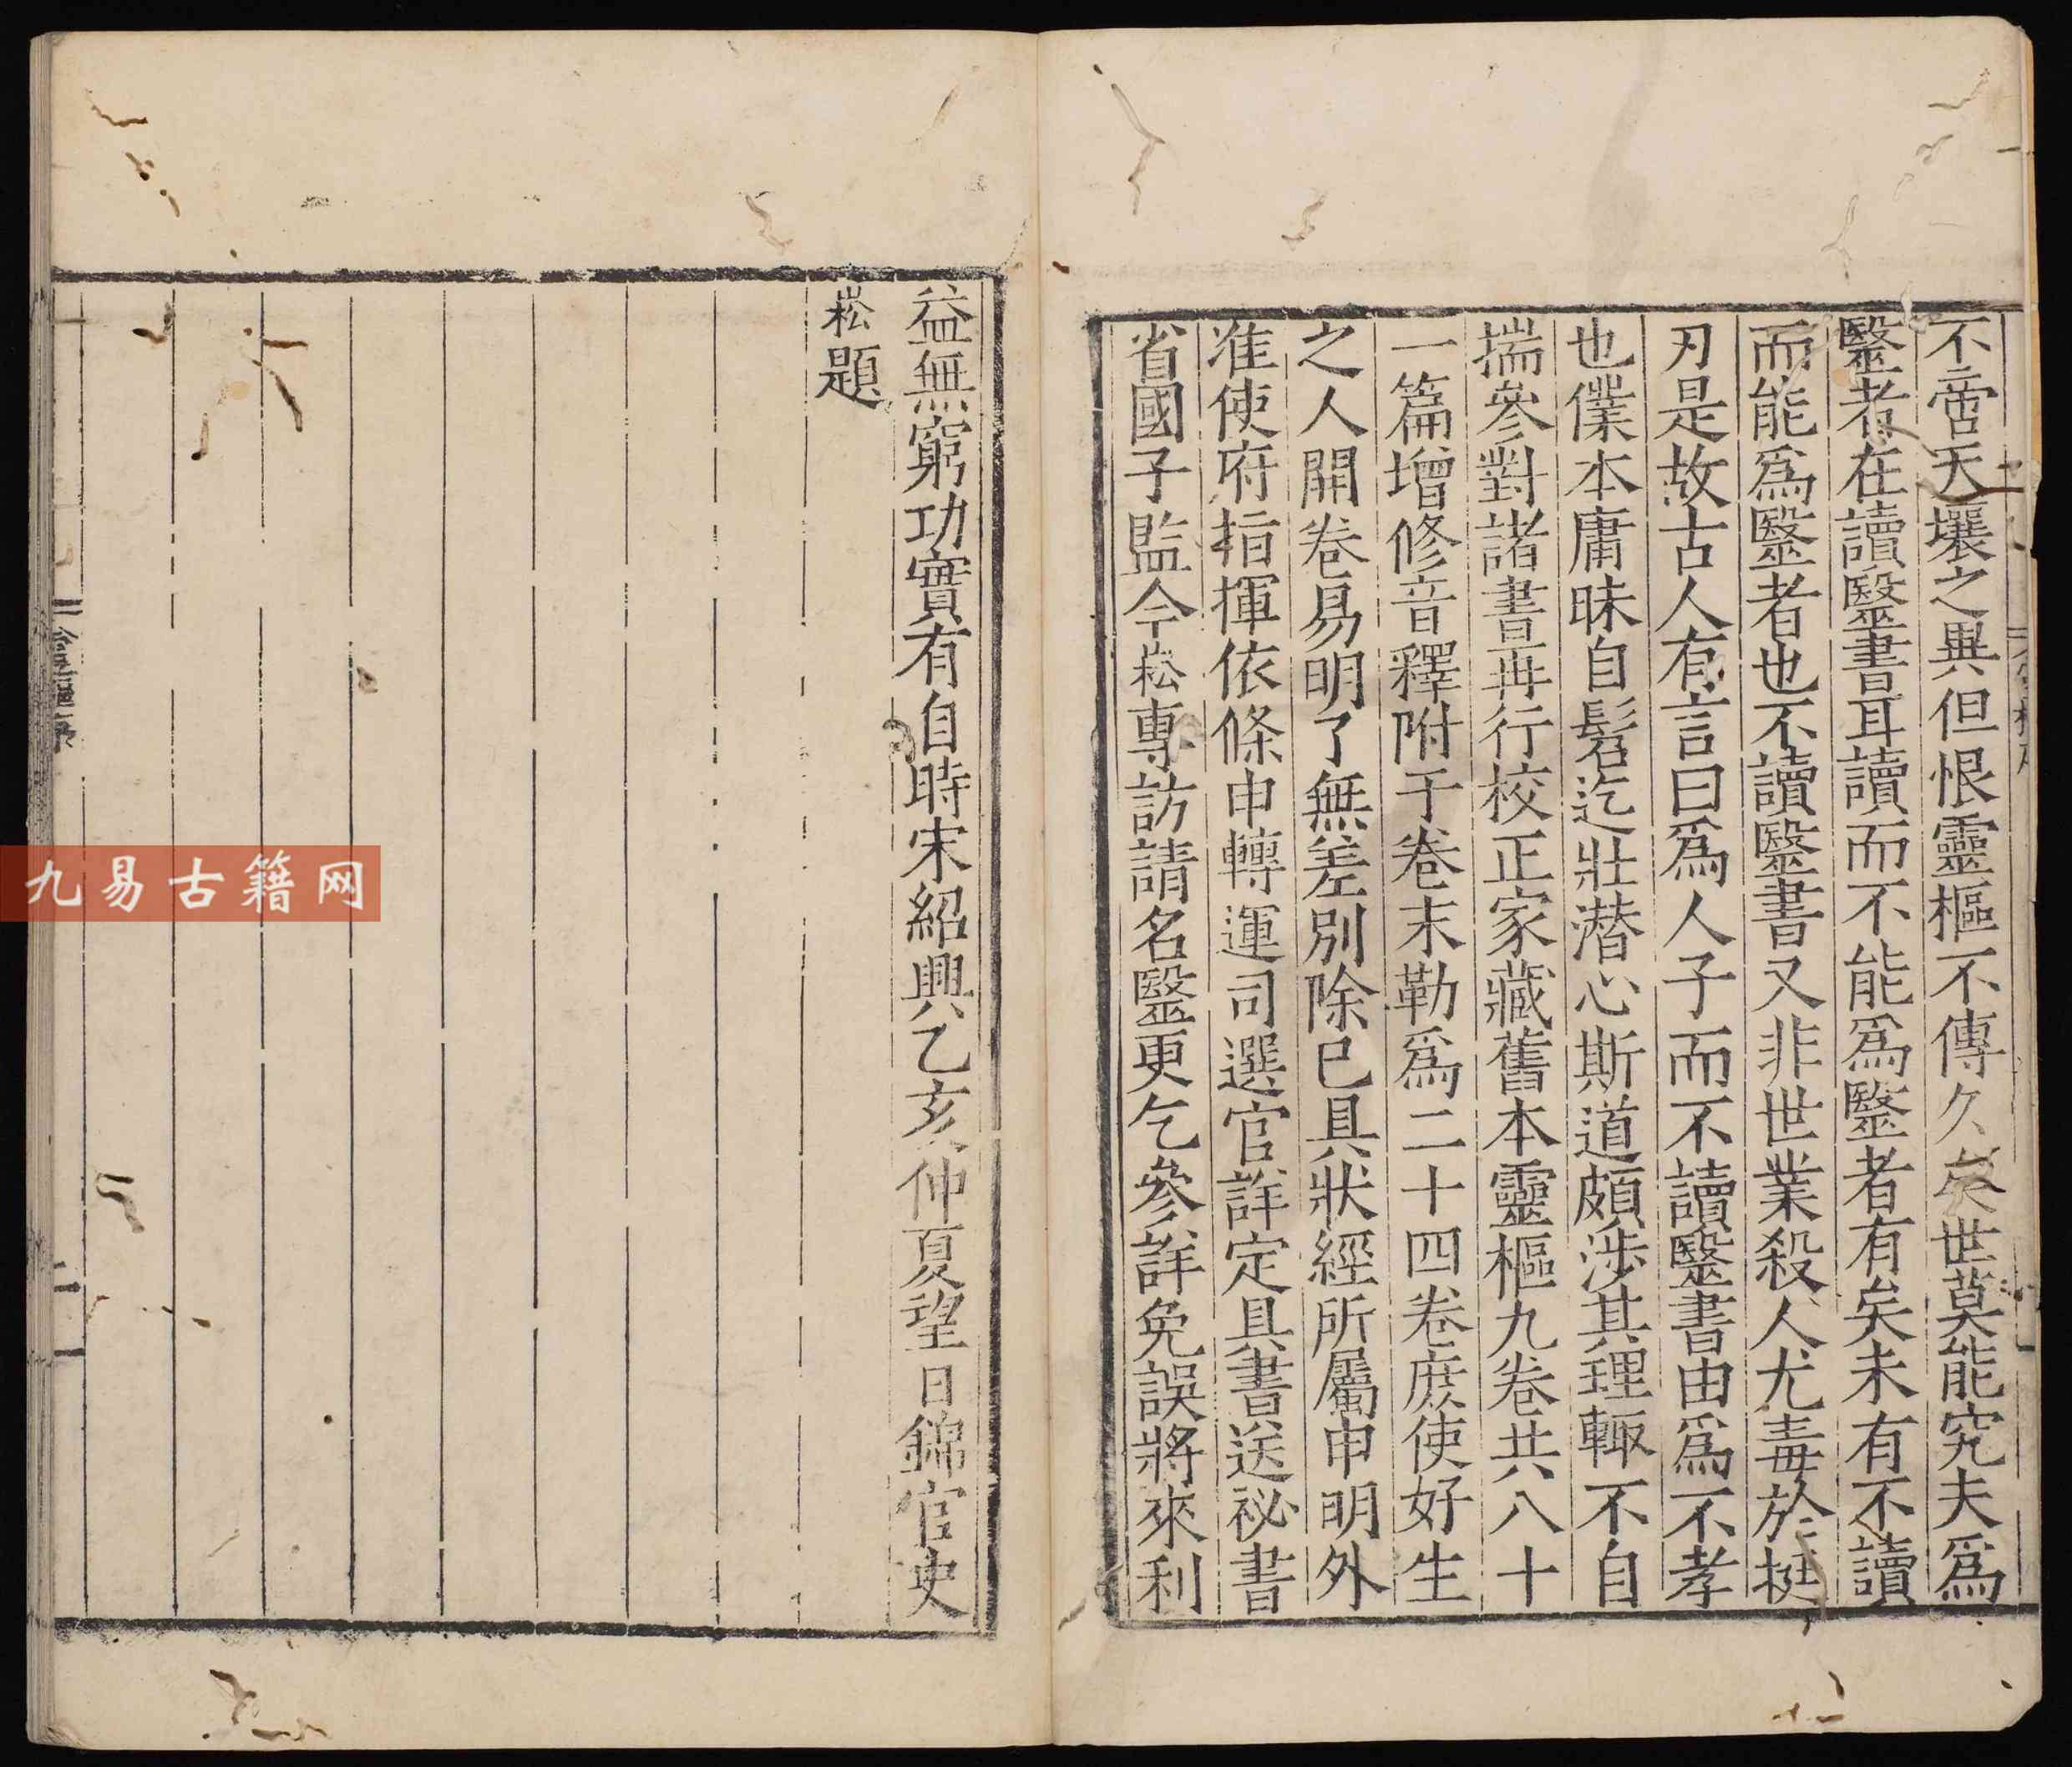 不啻天壤之異但恨靈樞不傳久矣世莫能究夫爲
醫者在讀醫書耳讀而不能爲醫者有矣未有不讀
而能爲醫者也不讀醫書又非世業殺人尤毒於梃
刃是故古人有言曰爲人子而不讀醫書由爲不孝
也僕本庸昧自髫迄壯潜心斯道頗涉其理輒不自
揣參對諸書再行校正家藏舊本靈樞九卷共八十
一篇增修音釋附于卷末勒爲二十四卷庶使好生
之人開卷易明了無差別除已具狀經所屬申明外
准使府指揮依條申轉運司選官詳定具書送祕書
省國子監今崧專訪請名醫更乞參詳免誤將來利
益無窮功實有自時宋紹興乙亥仲夏望日錦官史
崧題
靈樞序
二
九易古籍网